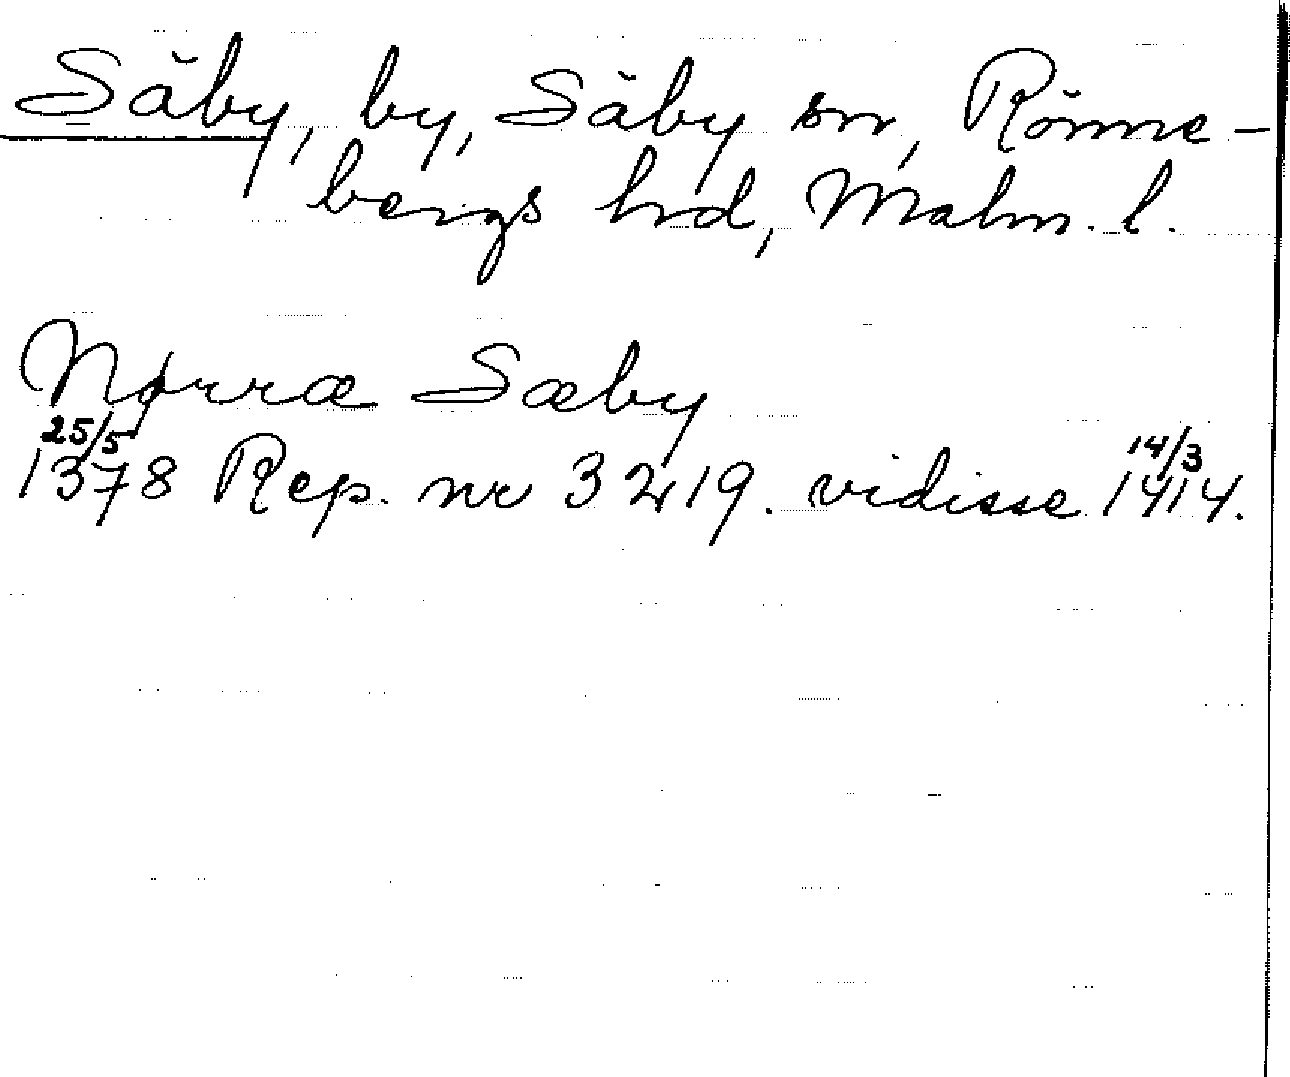 Säby, by, Säby sn, Rönne-
bergs hd, Malm. l.
Nørræ Sæby
25/5
1378 Rep. nr 3219. vidisse 14/3 1414.